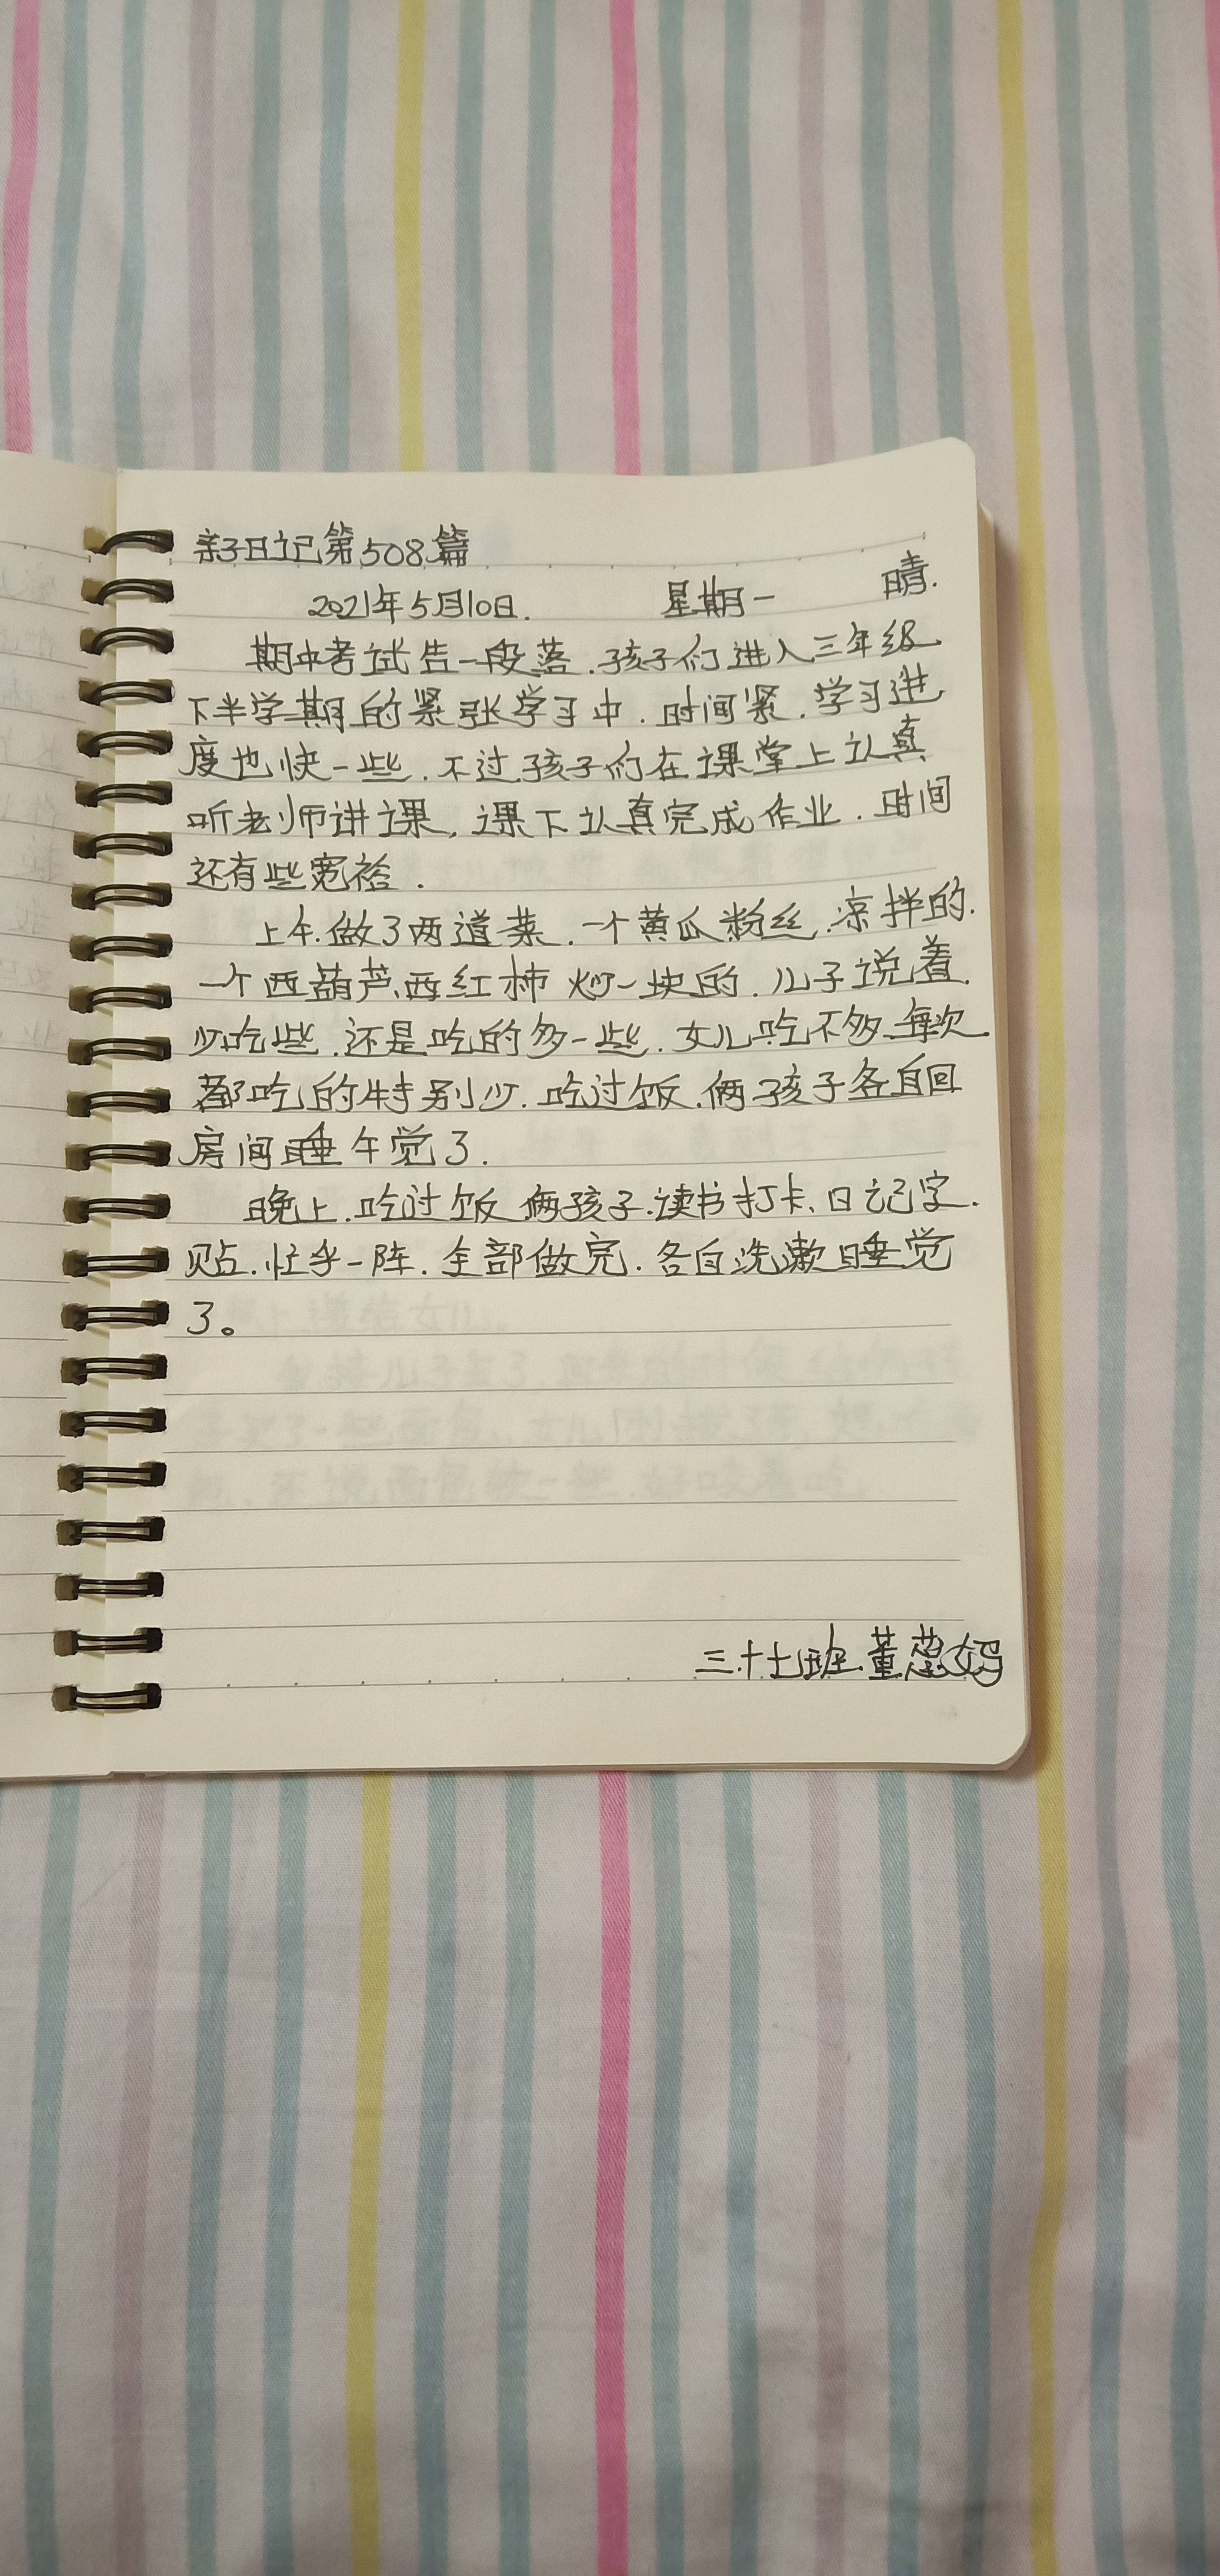 亲子日记第508篇
2021年5月10日. 星期一 晴.
期中考试告一段落.孩子们进入三年级
下半学期的紧张学习中.时间紧.学习进
度也快一些.不过孩子们在课堂上认真
听老师讲课,课下认真完成作业.时间
还有些宽裕.
上午.做了两道菜.一个黄瓜粉丝.凉拌的.
一个西葫芦、西红柿炒一块的.儿子说着.
少吃些.还是吃的多一些.女儿吃不多.每次
都吃的特别少.吃过饭.俩孩子各自回
房间睡午觉了.
晚上.吃过饭俩孩子.读书打卡、日记字.
贴.忙乎一阵.全部做完.各自洗漱睡觉
了。
三.十七班.董蕊妈